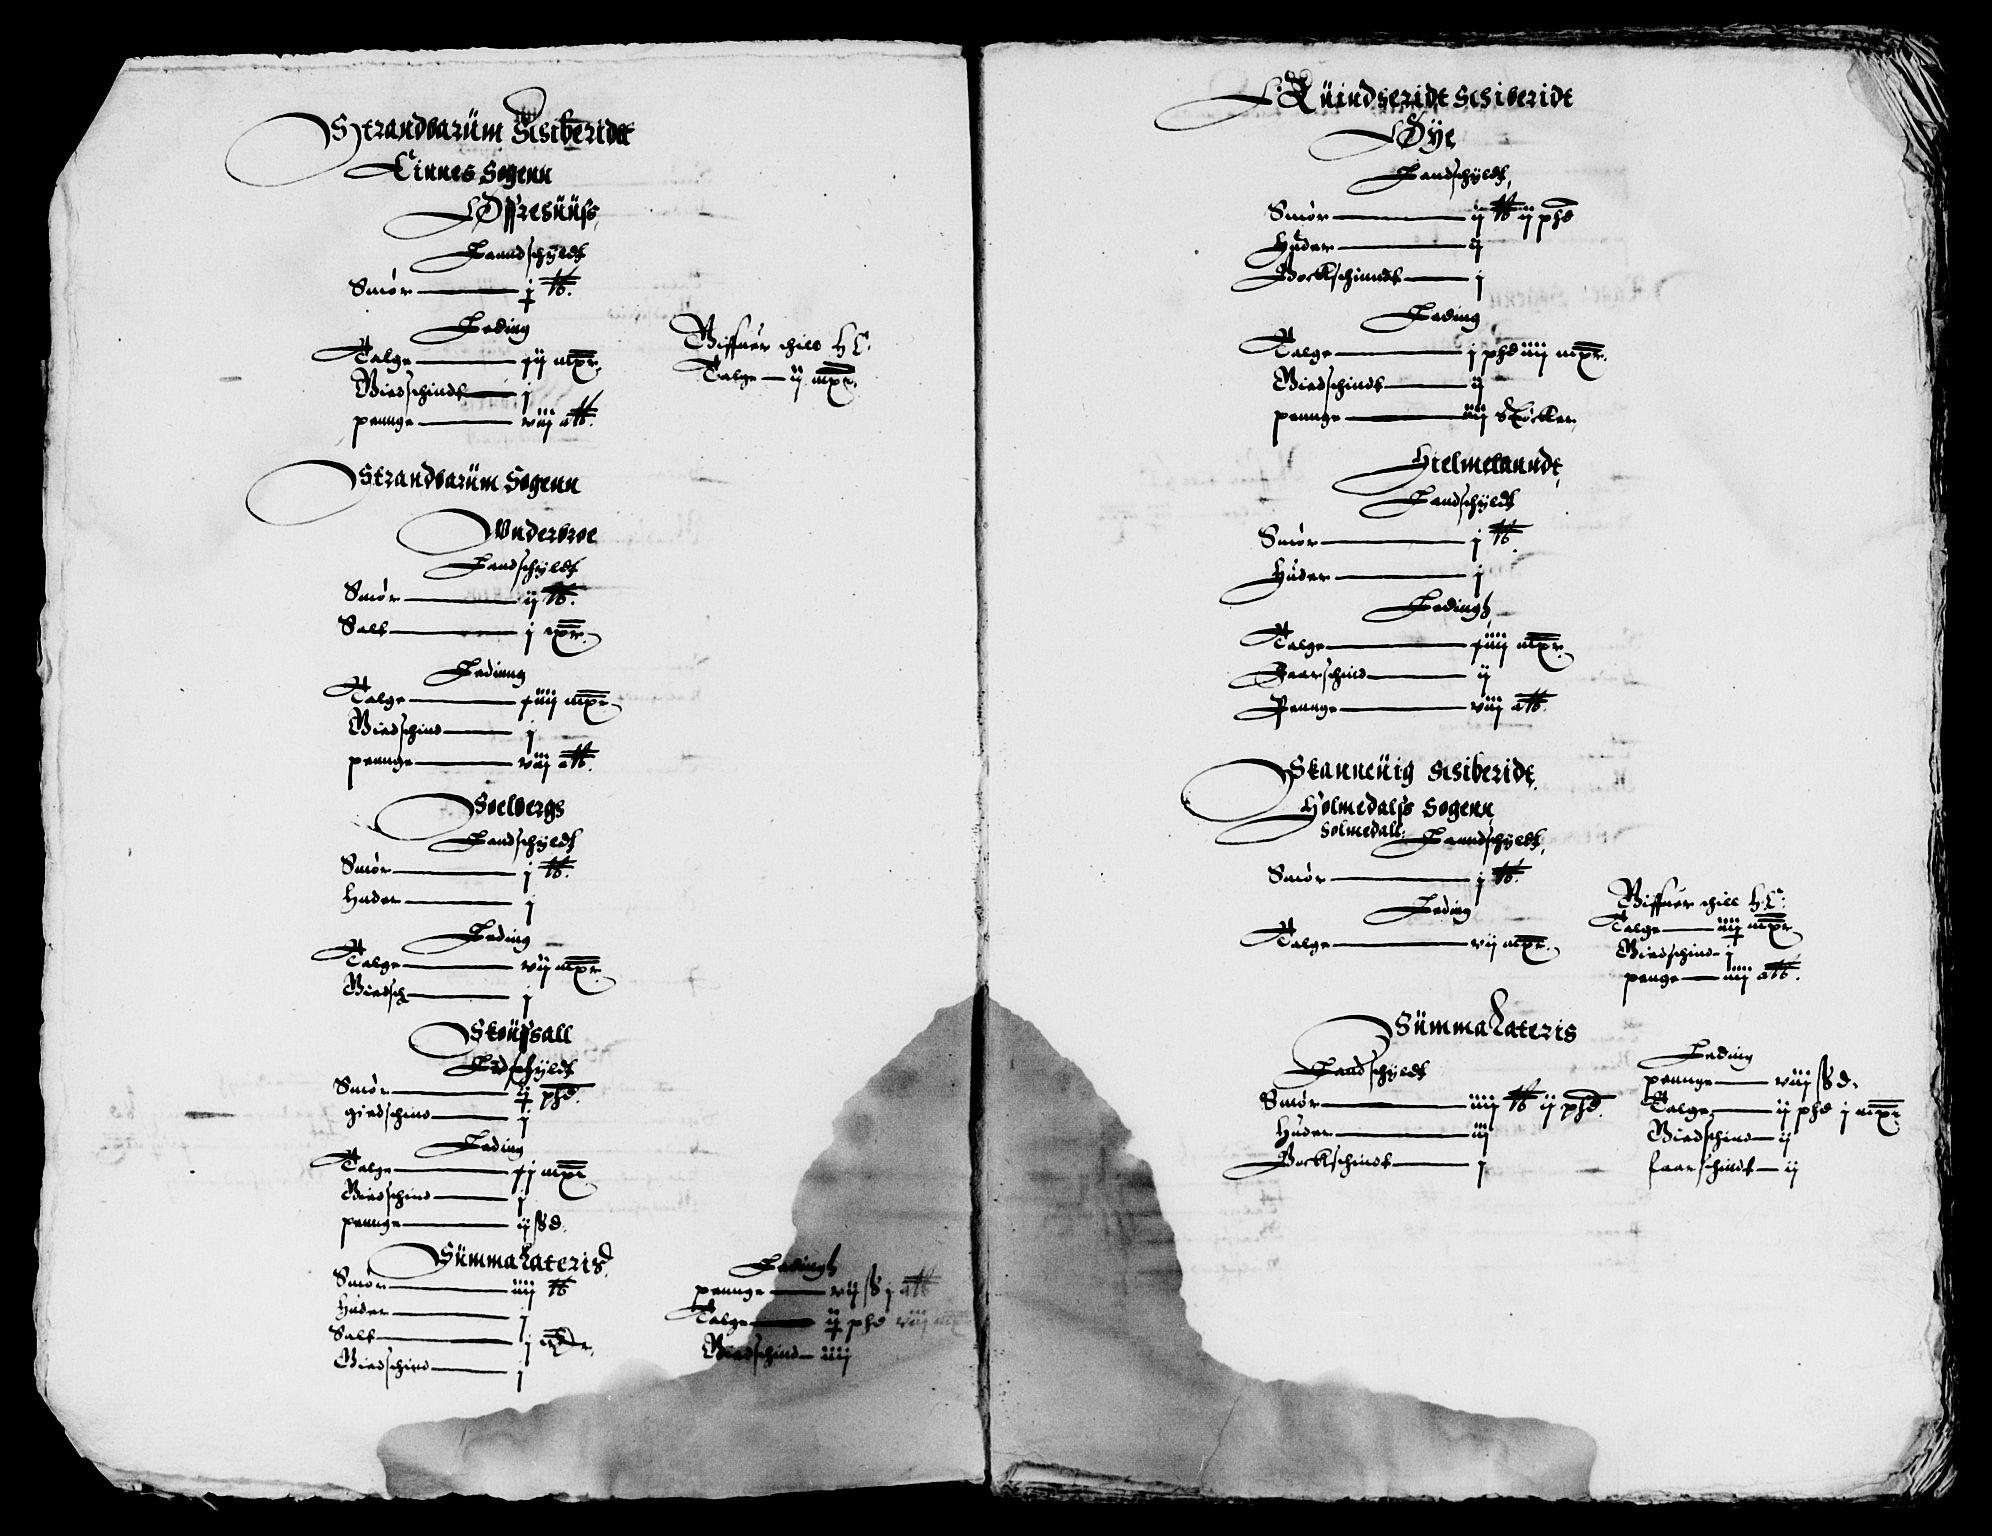 Strandbarüm Schiberidt
Tinnes Sogenn
Øffresüüss
Lanndschyldt
Smør — j ℔.
Leding
Talge — jij mpr.
Giedschindt — j
pennge — viij alb.
Bissner thill H C.
Talge — ij mpr.
Strandbarüm Sogenn
Vnderbroe
Landschyldt
Smør — ij ℔.
Salt — j mpr.
Ledinng
Talge — jiiij mpr.
Giedschind — j
pennge — viij alb.
Soelbergs
Landschyldt
Smør — j ℔.
Huder — j
Leding
Talge — vij mpr.
Giedsch — j
Skoüffsall
Ldschyldt
Smør — ij phd.
giedschind — j
Leding
Talge — jij mpr
Giedschind — j
pennge — ij ß d.
Sümma Lateris
Smør — iiij ℔
Huder — j
Salt — j
Giedschind — j
Ledingh
pennge — vij ß j alb
Talge — ij phd viij mpr
Giedschind — iiij
Qüindheridt Schiberidt
Øye
Landschyldt
Smør — ij ℔ ij phd
Huder — ij
Bockschinndt — j
Leding
Talge — j phd iiij mpr.
Giedschindt — ij
pennge — iiij støcker
Hielmelanndt
Landschyldt
Smør — j ℔.
Huder — j
Ledingh
Talge — jiiij mpr.
Faarschind — ij
Pennge — viij alb.
Skanneüig Schiberidt
Holmedalss Sogenn
Solmedall: Lanndschyldt
Smør — j ℔.
Leding
Talge — vij mpr.
Bissner thill H C.
Talge — iiij mpr
Giedschind — j
penge — iiij alb.
Sümma Lateris
Landschyldt
Smør — iiij ℔ ij phd.
Huder — iij
Bockschindt — j
Leding
pennge — viij ß d.
Talge — ij phd j mpr
Giedschind — ij
faarschindt — ij